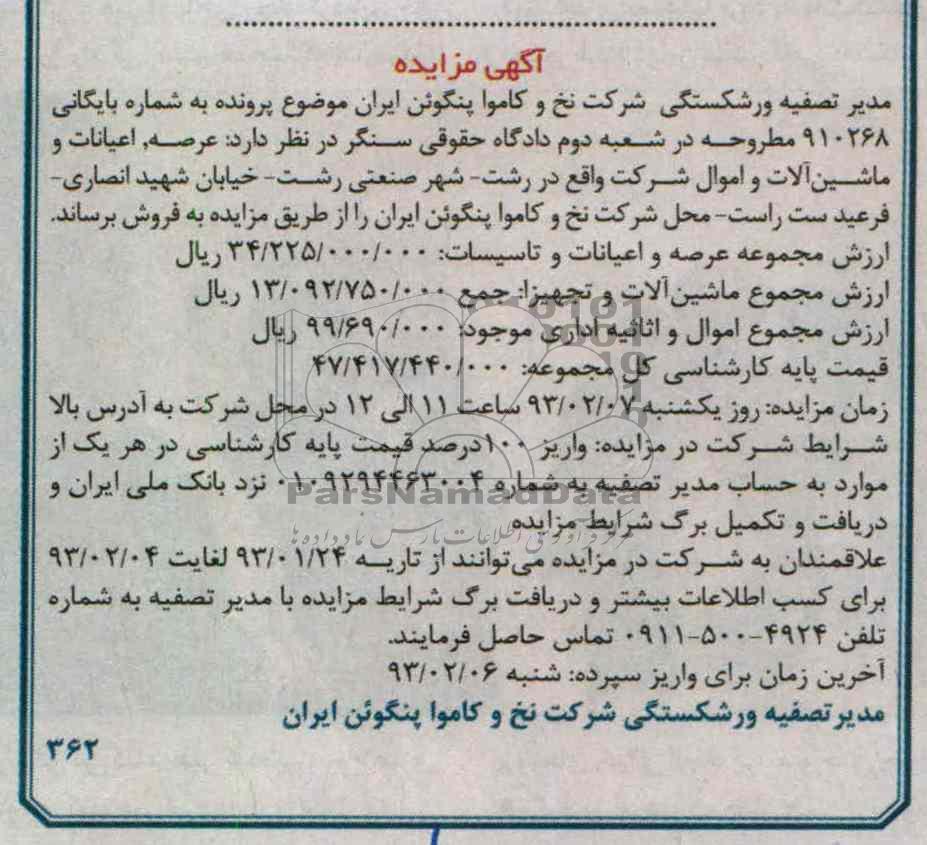 آگهی مزایده
مدیر تصفیه ورشکستگی شرکت نخ و کاموا پنگوئن ایران موضوع پرونده به شماره بایگانی
۹۱۰۲۶۸ مطروحه در شعبه دوم دادگاه حقوقی سنگر در نظر دارد: عرصه, اعیانات و
ماشین‌آلات و اموال شرکت واقع در رشت- شهر صنعتی رشت- خیابان شهید انصاری-
فرعید ست راست- محل شرکت نخ و کاموا پنگوئن ایران را از طریق مزایده به فروش برساند.
ارزش مجموعه عرصه و اعیانات و تاسیسات: ۳۴/۲۲۵/۰۰۰/۰۰۰ ریال
ارزش مجموع ماشین‌آلات و تجهیزا: جمع ۱۳/۰۹۲/۷۵۰/۰۰۰ ریال
ارزش مجموع اموال و اثاثیه اداری موجود: ۹۹/۶۹۰/۰۰۰ ریال
قیمت پایه کارشناسی کل مجموعه: ۴۷/۴۱۷/۴۴۰/۰۰۰
زمان مزایده: روز یکشنبه ۹۳/۰۲/۰۷ ساعت ۱۱ الی ۱۲ در محل شرکت به آدرس بالا
شرایط شرکت در مزایده: واریز ۱۰۰درصد قیمت پایه کارشناسی در هر یک از
موارد به حساب مدیر تصفیه به شماره ۰۱۰۹۲۹۴۴۶۳۰۰۴ نزد بانک ملی ایران و
ParsNamadData
دریافت و تکمیل برگ شرایط مزایده
مرکز فرآوری اطلاعات پارس نماد داده ها
علاقمندان به شرکت در مزایده می‌توانند از تاریه ۹۳/۰۱/۲۴ لغایت ۹۳/۰۲/۰۴
برای کسب اطلاعات بیشتر و دریافت برگ شرایط مزایده با مدیر تصفیه به شماره
تلفن ۴۹۲۴-۵۰۰-۰۹۱۱ تماس حاصل فرمایند.
آخرین زمان برای واریز سپرده: شنبه ۹۳/۰۲/۰۶
مدیر تصفیه ورشکستگی شرکت نخ و کاموا پنگوئن ایران
۳۶۲